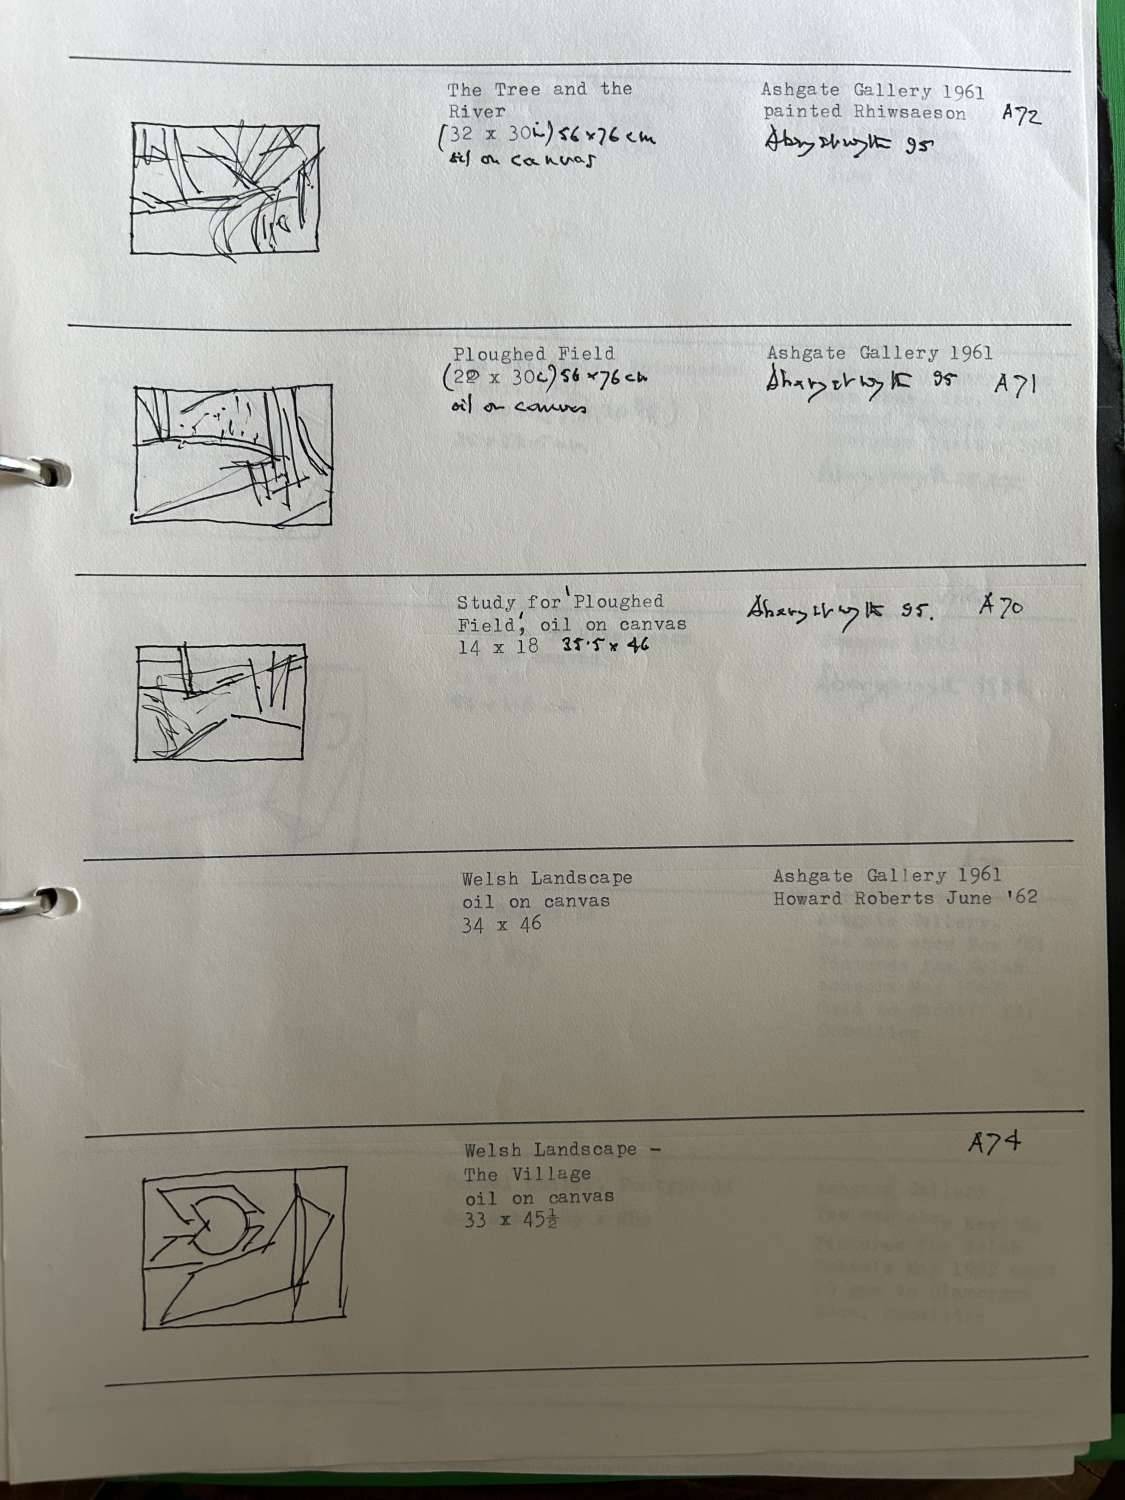 The Tree and the
River
(32 x 30in) 56 x 76 cm
oil on canvas
Ashgate Gallery 1961
painted Rhiwsaeson A72
Aberystwyth 95
Ploughed Field
(22 x 30 56 x 76 cm
oil on canvas
Ashgate Gallery 1961
Aberystwyth 95 A71
Study for 'Ploughed
Field,' oil on canvas
14 x 18 35.5 x 46
Aberystwyth 95. A70
Welsh Landscape
oil on canvas
34 x 46
Ashgate Gallery 1961
Howard Roberts June '62
Welsh Landscape -
The Village
oil on canvas
33 x 45½
A74